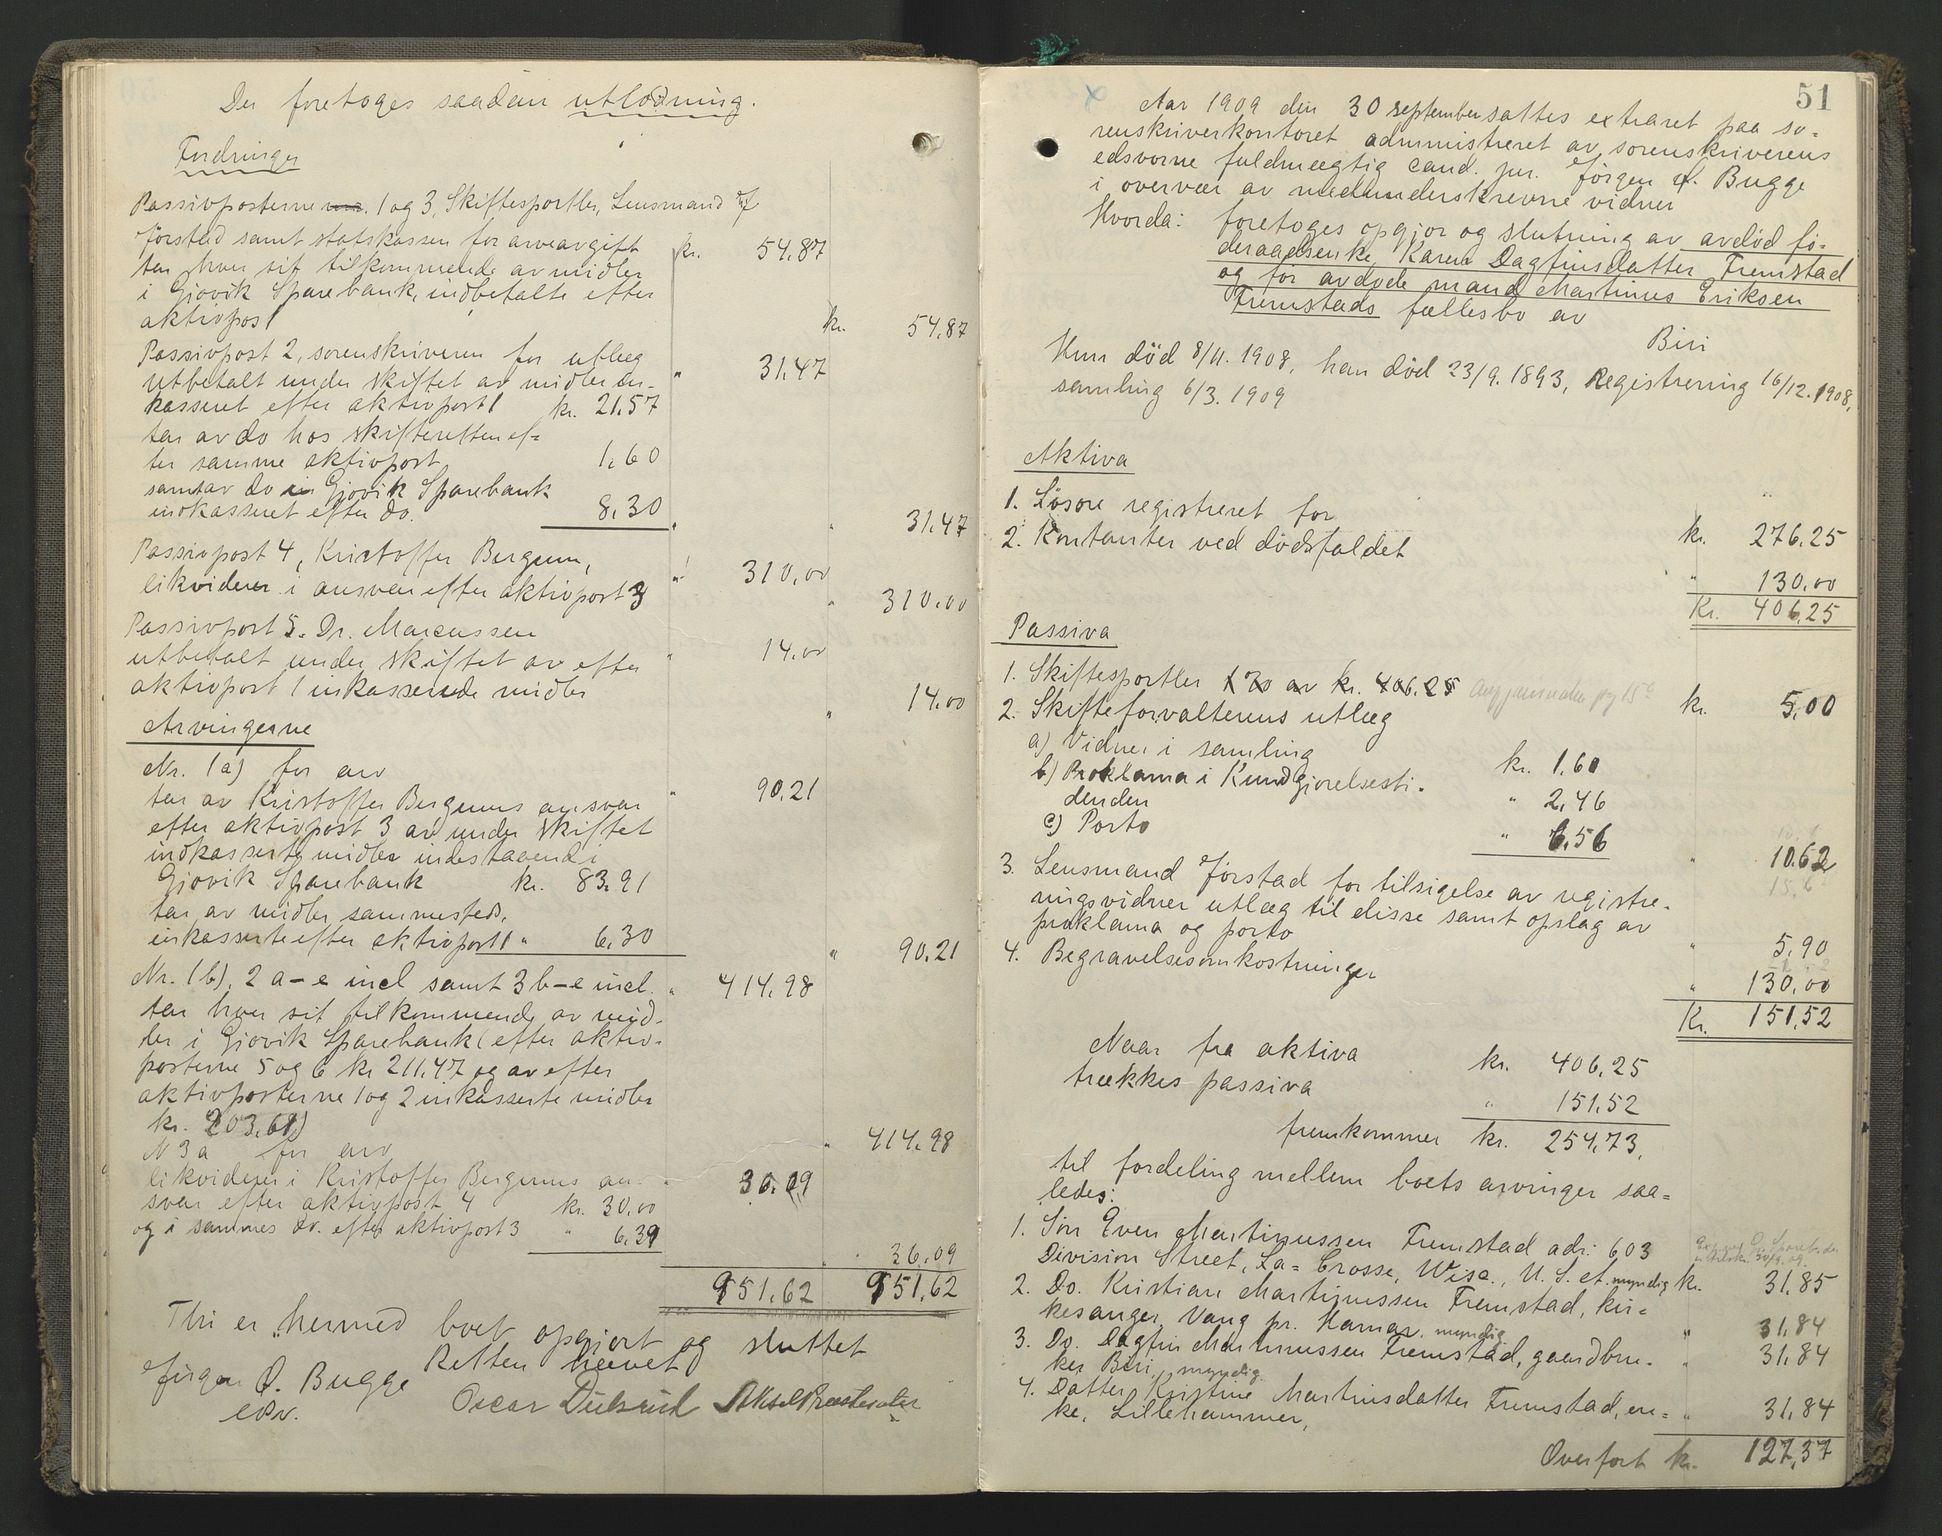 Der foretoges saadan utlodning.
Fordringer
Passivposterne 1 og 3, Skiftesportler, Lensmand
Jørstad samt statskassen for arveavgift kr. 54,87
tar hver sit tilkommende av midler
i Gjøvik Sparebank, indbetalte efter
aktivpost 1 kr. 54,87
Passivpost 2, sorenskriveren for utlæg " 31,47
utbetalt under skiftet av midler in-
kasseret efter aktivpost 1 kr. 21,57
tar av do hos skifteretten ef-
ter samme aktivpost 1,60
samt av do i Gjøvik Sparebank
indkasseret efter do. 8,30
" 31,47
Passivpost 4, Kristoffer Bergum, " 310,00
likviderer i ansvar efter aktivpost 3
" 310,00
Passivpost 5. Dr. Marcussen
utbetalt under skiftet av efter " 14,00
aktivpost 1 inkasserede midler
" 14,00
Arvingerne
Nr. 1 a) for arv " 90,21
tar av Kristoffer Bergums ansvar
efter aktivpost 3 av under skiftet
indkasserte midler indestaaende i
Gjøvik Sparebank kr. 83,91
tar av midler sammesteds,
inkasserte efter aktivpost 1 " 6,30
" 90,21
Nr. 1 b), 2 a-e incl samt 3 b-e incl. " 414,98
tar hver sit tilkommende av mid-
ler i Gjøvik Sparebank (efter aktiv-
posterne 5 og 6 kr 211,47 og av efter
aktivposterne 1 og 2 inkasserte midler
kr. 203,61)
" 414,98
N 3 a for arv
likviderer i Kristoffer Bergums an- " 36,09
svar efter aktivpost 4 kr. 30,00
og i sammes do. efter aktivpost 3 " 6,39
" 36,09
951,62 951,62
Thi er hermed boet opgjort og sluttet
Retten hævet
Jørgen Ø. Bugge
eSv.
Oscar Dulsrud
51
Aar 1909 den 30 september sattes extraret paa so-
renskriverkontoret administreret av sorenskriverens
edsvorne fuldmægtig cand. jur. Jørgen Ø. Bugge
i overvær av medunderskrevne vidner
Hvorda: foretoges opgjør og slutning av avdød fø-
deraadsenke Karen Dagfinsdatter Fremstad
og før avdøde mand Martinus Eriksen
Fremstads fællesbo av
Biri
Hun død 8/11. 1908, han død 23/9. 1893, Registrering 16/12. 1908,
samling 6/3. 1909
Aktiva
1. Løsøre registreret for kr. 276,25
2. Kontanter ved dødsfaldet " 130,00
Kr. 406,25
Passiva
1. Skiftesportler 1 70 av kr. 406,25 kr. 5,00
2. Skifteforvalterens utlæg
a) Vidner i samling kr. 1,60
b) Proklama i Kundgjørelsesti-
denden " 2,46
c) Porto " 6,56
" 10,62
3. Lensmand Jørstad for tilsigelse av registre-
ringsvidner utlæg til disse samt opslag av
proklama og porto " 5,90
4. Begravelsesomkostninger " 130,00
Kr. 151,52
Naar fra aktiva kr. 406,25
trækkes passiva " 151,52
fremkommer kr. 254,73,
til fordeling mellem boets arvinger saa-
ledes:
1. Søn Even Martinussen Fremstad adr: 603
Division Street, La=Crosse, Wisc., U. S. A. myndig kr. 31,85
2. Do. Kristian Martinussen Fremstad, kir-
kesanger, Vang pr. Hamar, myndig " 31,84
3. Do. Dagfin Martinussen Fremstad, gaardbru-
ker Biri, myndig. " 31,84
4. Datter Kristine Martinsdatter Fremstad, en-
ke, Lillehammer, " 31,84
Overført kr. 127,37